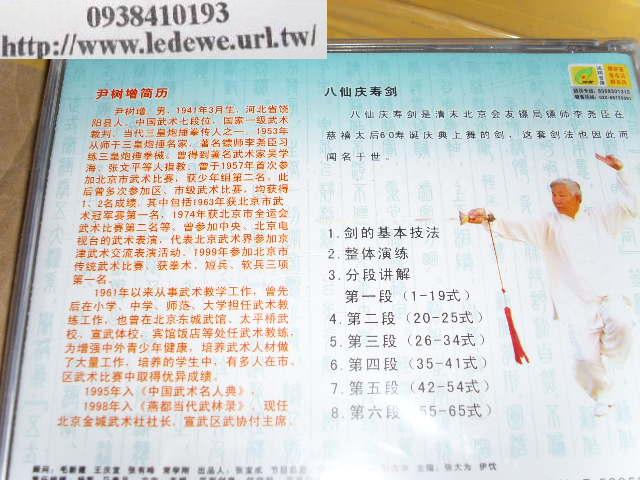 0938410193
http://www.ledewe.url.tw/
尹树增简历
尹树增，男，1941年3月生，河北省饶
阳县人，中国武术七段位，国家一级武术
裁判，当代三皇炮捶拳传人之一，1953年
从师于三皇炮捶名家，著名镖师李尧臣习
练三皇炮捶拳械。曾得到著名武术家吴学
海、张文平等人指教，曾于1957年首次参
加北京市武术比赛，获少年组第二名。此
后曾多次参加区、市级武术比赛，均获得
1、2名成绩，其中包括1963年获北京市武
术冠军赛第一名，1974年获北京市全运会
武术比赛第二名等，曾参加中央、北京电
视台的武术表演，代表北京武术界参加京
津武术交流表演活动。1999年参加北京市
传统武术比赛，获拳术、短兵、软兵三项
第一名。
1961年以来从事武术教学工作，曾先
后在小学、中学、师范、大学担任武术教
练工作，也曾在北京东城武馆、太平桥武
校、宣武体校、宾馆饭店等处任武术教练，
为增强中外青少年健康，培养武术人材做
了大量工作，培养的学生中，有多人在市、
区武术比赛中取得优异成绩。
1995年入《中国武术名人典》，
1998年入《燕都当代武林录》，现任
北京金城武术社社长，宣武区武协付主席。
八仙庆寿剑
八仙庆寿剑是清末北京会友镖局镖师李尧臣在
慈禧太后60寿诞庆典上舞的剑，这套剑法也因此而
闻名于世。
1.剑的基本技法
2.整体演练
3.分段讲解
第一段（1-19式）
4.第二段（20-25式）
5.第三段（26-34式）
6.第四段（35-41式）
7.第五段（42-54式）
8.第六段（55-65式）
顾问：毛新建 王庆宜 张有峰 常学刚 出品人：张宝成
主编：张大为 伊忱